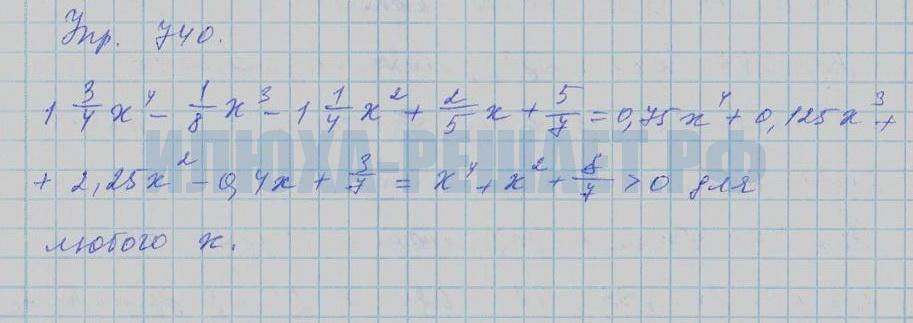 Упр. 740.
1 3/4 x⁴ - 1/8 x³ - 1 1/4 x² + 2/5 x + 5/7 = 0,75x⁴ + 0,125x³ +
+ 2,25x² - 0,4x + 3/7 = x⁴ + x² + 8/7 > 0 для
любого x.
ИЛЮХА-РЕШАЕТ.РФ